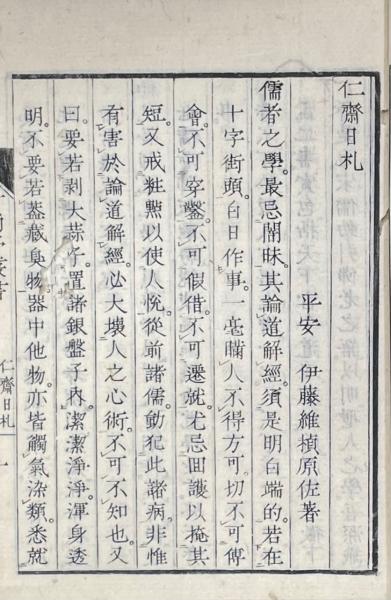 仁齋日札
平安 伊藤維楨原佐著
儒者之學。最忌闇昧。其論道解經。須是明白端的。若在
十字街頭。白日作事。一毫瞞人不得方可。切不可傅
會。不可穿鑿。不可假借。不可遷就。尤忌回護以掩其
短。又戒粧點以使人悅。從前諸儒動犯此諸病。非惟
有害於論道解經。必大壞人之心術。不可不知也。又
曰。要若剥大蒜子。置諸銀盤子内。潔潔淨淨。渾身透
明。不要若蓋藏臭物器中他物。亦皆觸氣染類。悉就
仁齋日札
一